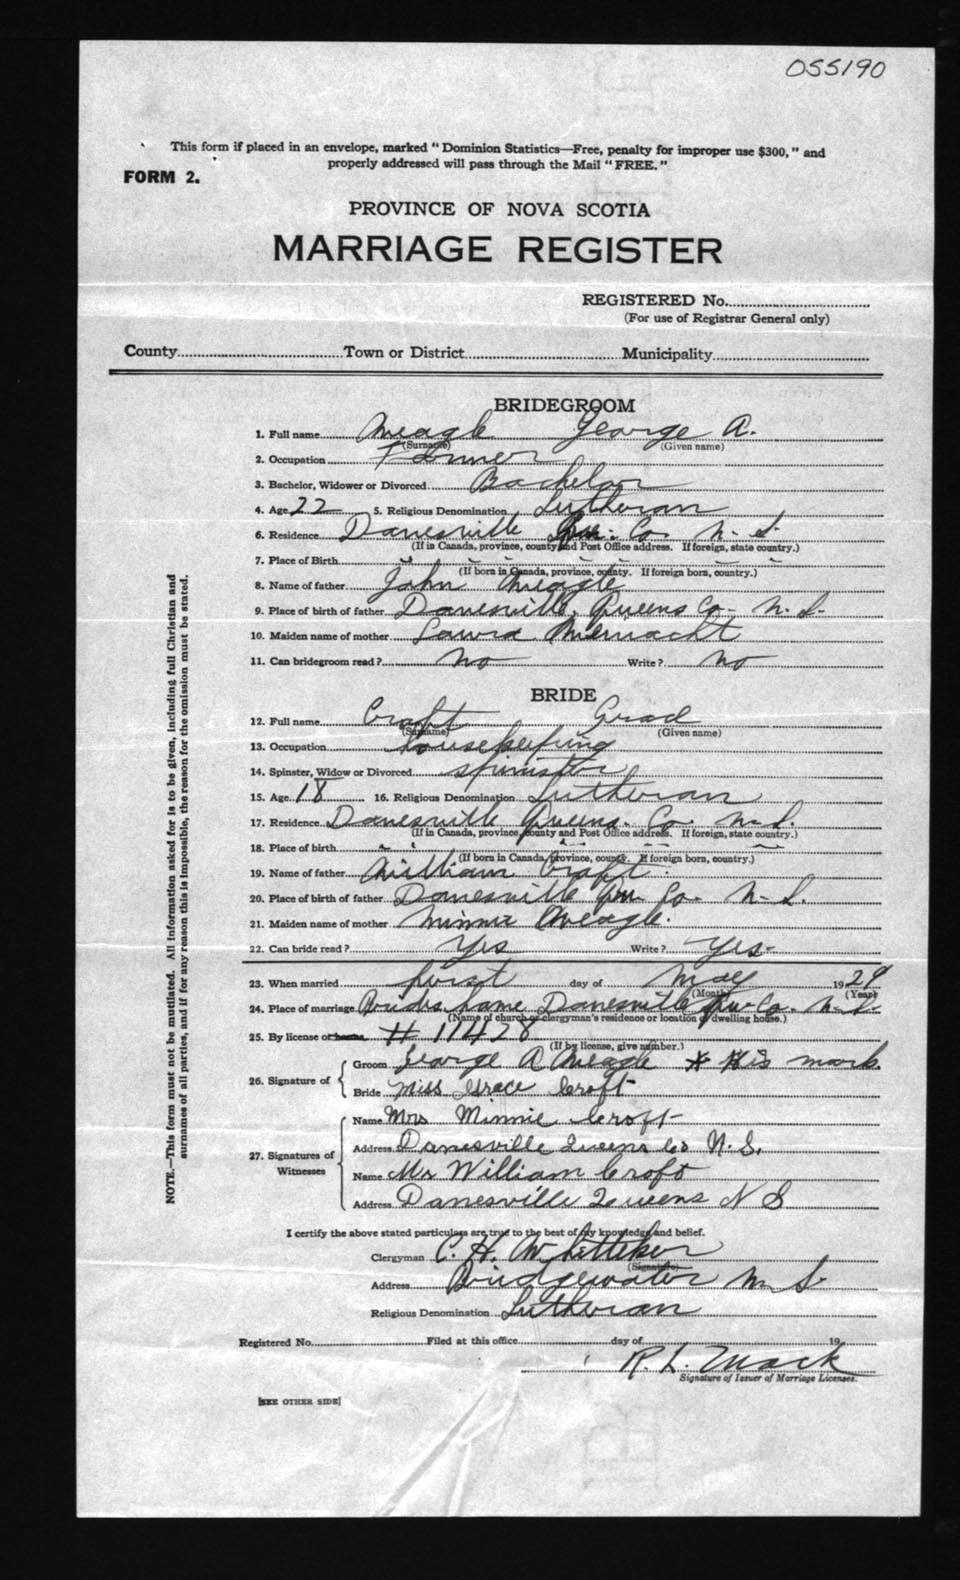 055190
This form if placed in an envelope, marked "Dominion Statistics—Free, penalty for improper use $300," and
properly addressed will pass through the Mail "FREE."
FORM 2.
PROVINCE OF NOVA SCOTIA
MARRIAGE REGISTER
REGISTERED No.
(For use of Registrar General only)
County Town or District Municipality
BRIDEGROOM
1. Full name Meagle George A.
(Surname) (Given name)
2. Occupation Farmer
3. Bachelor, Widower or Divorced Bachelor
4. Age 22 5. Religious Denomination Lutheran
6. Residence Danesville Qu. Co. N. S.
(If in Canada, province, county and Post Office address. If foreign, state country.)
7. Place of Birth " " " "
(If born in Canada, province, county. If foreign born, country.)
8. Name of father John Meagle
9. Place of birth of father Danesville, Queens Co. N. S.
10. Maiden name of mother Laura
11. Can bridegroom read? No Write? No
BRIDE
12. Full name Croft
(Surname) (Given name)
13. Occupation Housekeeping
14. Spinster, Widow or Divorced Spinster
15. Age 18 16. Religious Denomination Lutheran
17. Residence Danesville Queens. Co. N. S.
(If in Canada, province, county and Post Office address. If foreign, state country.)
18. Place of birth " " " "
(If born in Canada, province, county. If foreign born, country.)
19. Name of father William Croft.
20. Place of birth of father Danesville Qu. Co. N. S.
21. Maiden name of mother Minnie Meagle.
22. Can bride read? Yes Write? Yes-
23. When married first day of May 1929
(Month) (Year)
24. Place of marriage Brides home Danesville Qu Co. N. S.
(Name of church or clergyman's residence or location of dwelling house.)
25. By license or banns # 11428
(If by license, give number.)
26. Signature of
Groom George A Meagle X His mark.
Bride Miss Grace Croft
27. Signatures of Witnesses
Name Mrs Minnie Croft
Address Danesville Queens Co N. S.
Name Mr William Croft
Address Danesville Queens N S
I certify the above stated particulars are true to the best of my knowledge and belief.
Clergyman C. H. Whitteker
(Signature)
Address Bridgewater N S
Religious Denomination Lutheran
Registered No. Filed at this office day of 19
R. L. Mack
Signature of Issuer of Marriage Licenses.
[SEE OTHER SIDE]
NOTE.—This form must not be mutilated. All information asked for is to be given, including full Christian and
surnames of all parties, and if for any reason this is impossible, the reason for the omission must be stated.